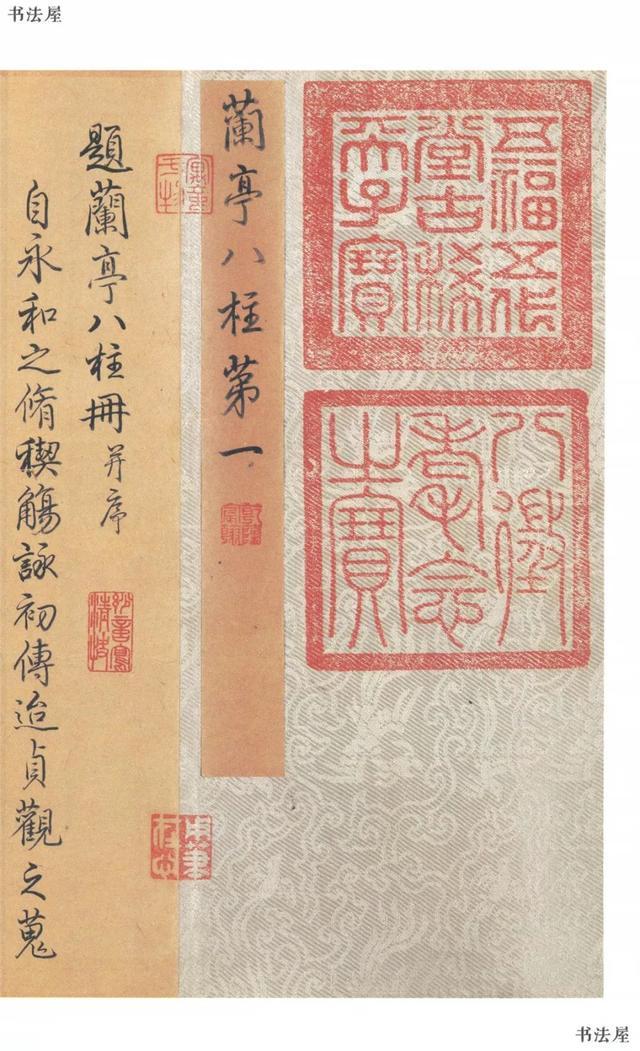 书法屋
五福五代
堂古稀
天子寶
八徵
耄念
之寶
蘭亭八柱第一
題蘭亭八柱冊并序
自永和之脩稧觴詠初傳迨貞觀之蒐
书法屋